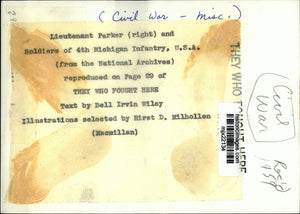 ( Civil War - Misc. )
Lieutenant Parker (right) and
Soldiers of 4th Michigan Infantry, U.S.A.
(from the National Archives)
reproduced on Page 29 of
THEY WHO FOUGHT HERE
Text by Bell Irvin Wiley
Illustrations selected by Hirst D. Milhollen
(Macmillan)
THEY WHO FOUGHT HERE
mp22134
Civil
War
Rec'd